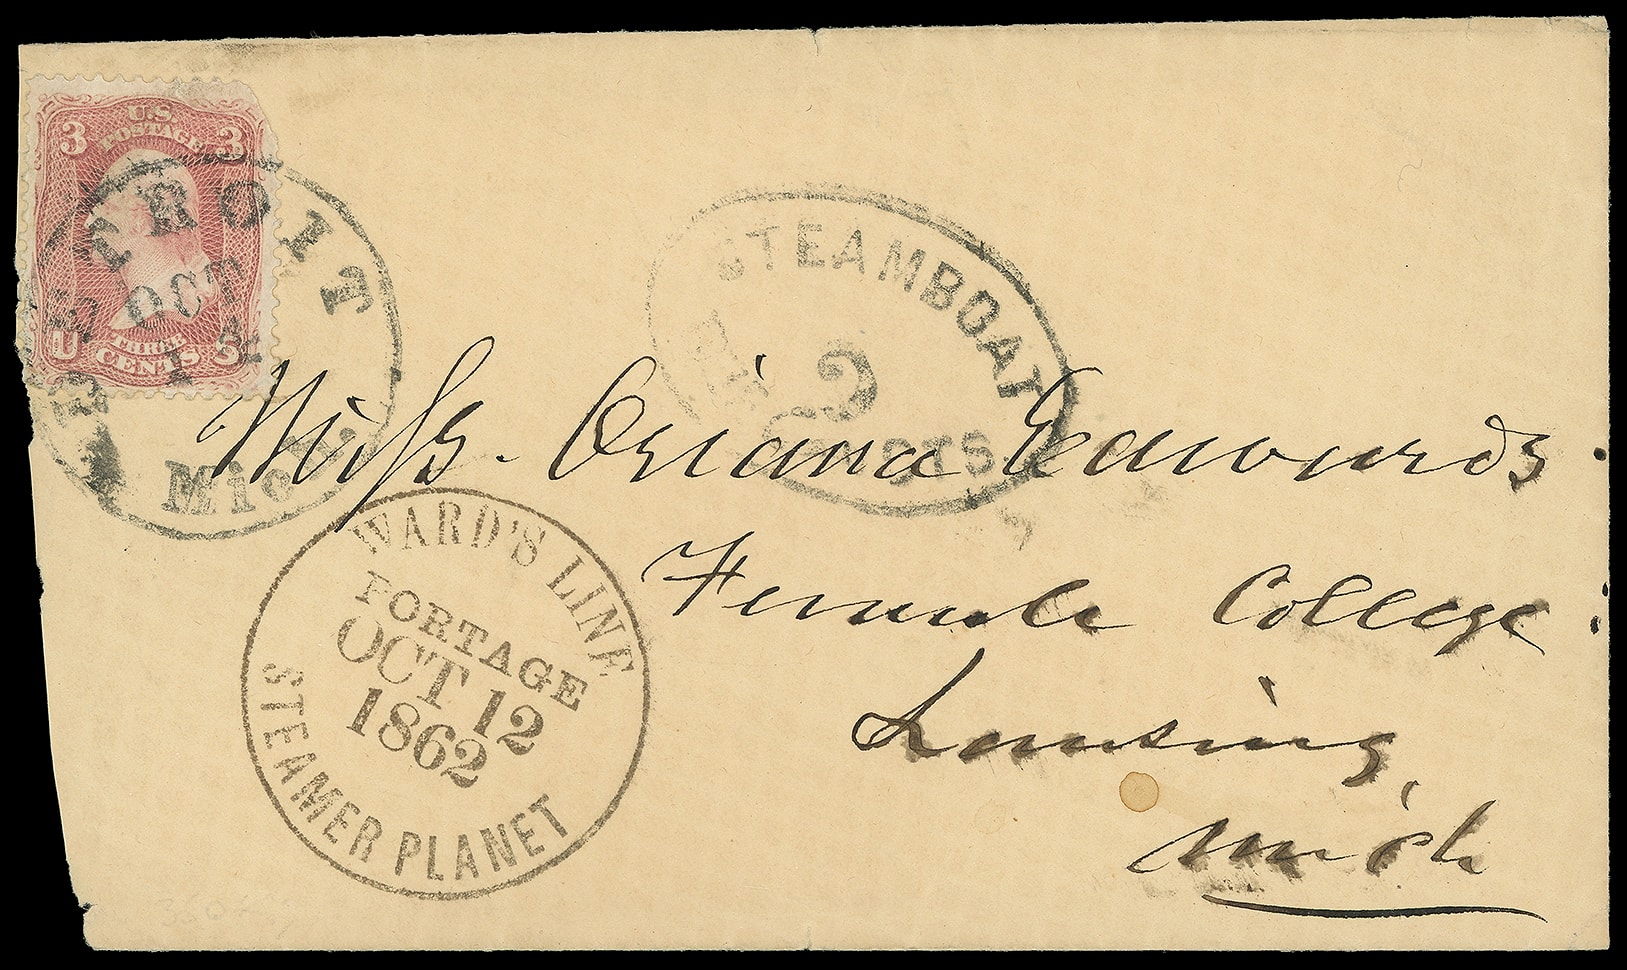 3 U.S. 3
POSTAGE
U THREE S
CENTS
DETROIT
OCT
14
Mich
STEAMBOAT
2
CTS
Miss. Oriana Edwards
Female College
Lansing,
Mich
WARD'S LINE
PORTAGE
OCT 12
1862
STEAMER PLANET